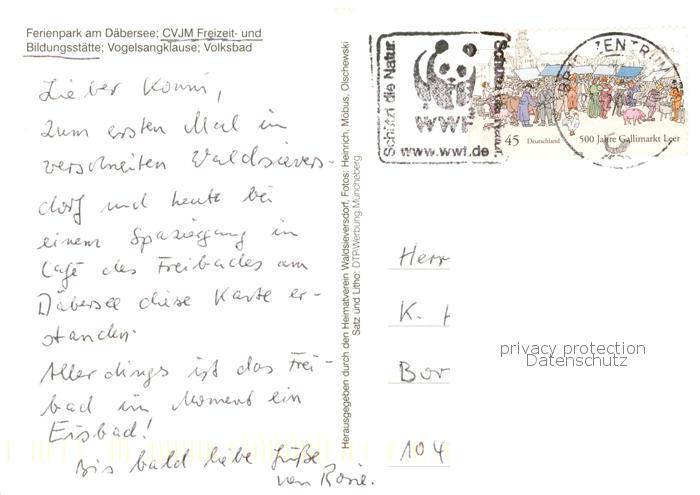 Ferienpark am Däbersee; CVJM Freizeit- und
Bildungsstätte; Vogelsangklause; Volksbad
Lieber Konni,
zum ersten Mal in
verschneiten Waldsievers-
dorf und heute bei
einem Spaziergang im
Café des Freibades am
Däbersee diese Karte er-
standen.
Allerdings ist das Frei-
bad im Moment ein
Eisbad!
Bis bald liebe Grüße
von Rosie.
Herausgegeben durch den Heimatverein Waldsieversdorf, Fotos: Heinrich, Möbus, Olschewski
Satz und Litho: DTP-Werbung Müncheberg
Schützt die Natur.
WWF
www.wwf.de
BRIEFZENTRUM
45 Deutschland 500 Jahre Gallimarkt Leer
Herr
K. H
Bor
104
privacy protection
Datenschutz